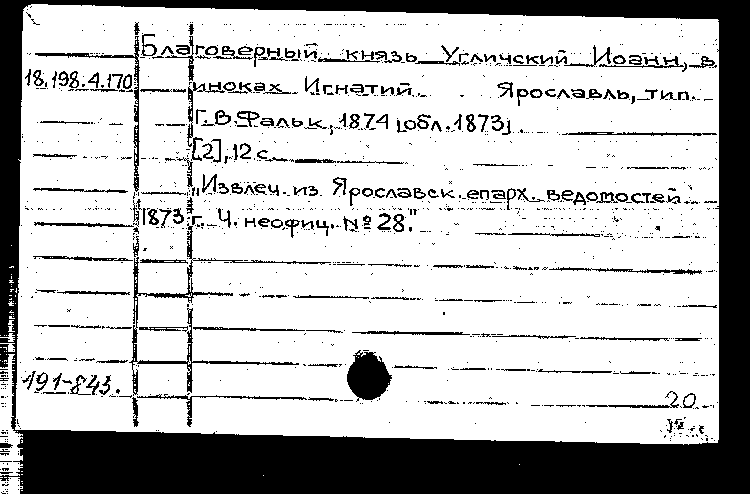 Благоверный князь Угличский Иоанн, в
18.198.4.170 иноках Игнатий. Ярославль, тип.
Г.В.Фальк, 1874 [обл.1873].
[2], 12 с.
„Извлеч. из Ярославск. епарх. ведомостей
1873 г. Ч. неофиц. № 28."
191-843.
20